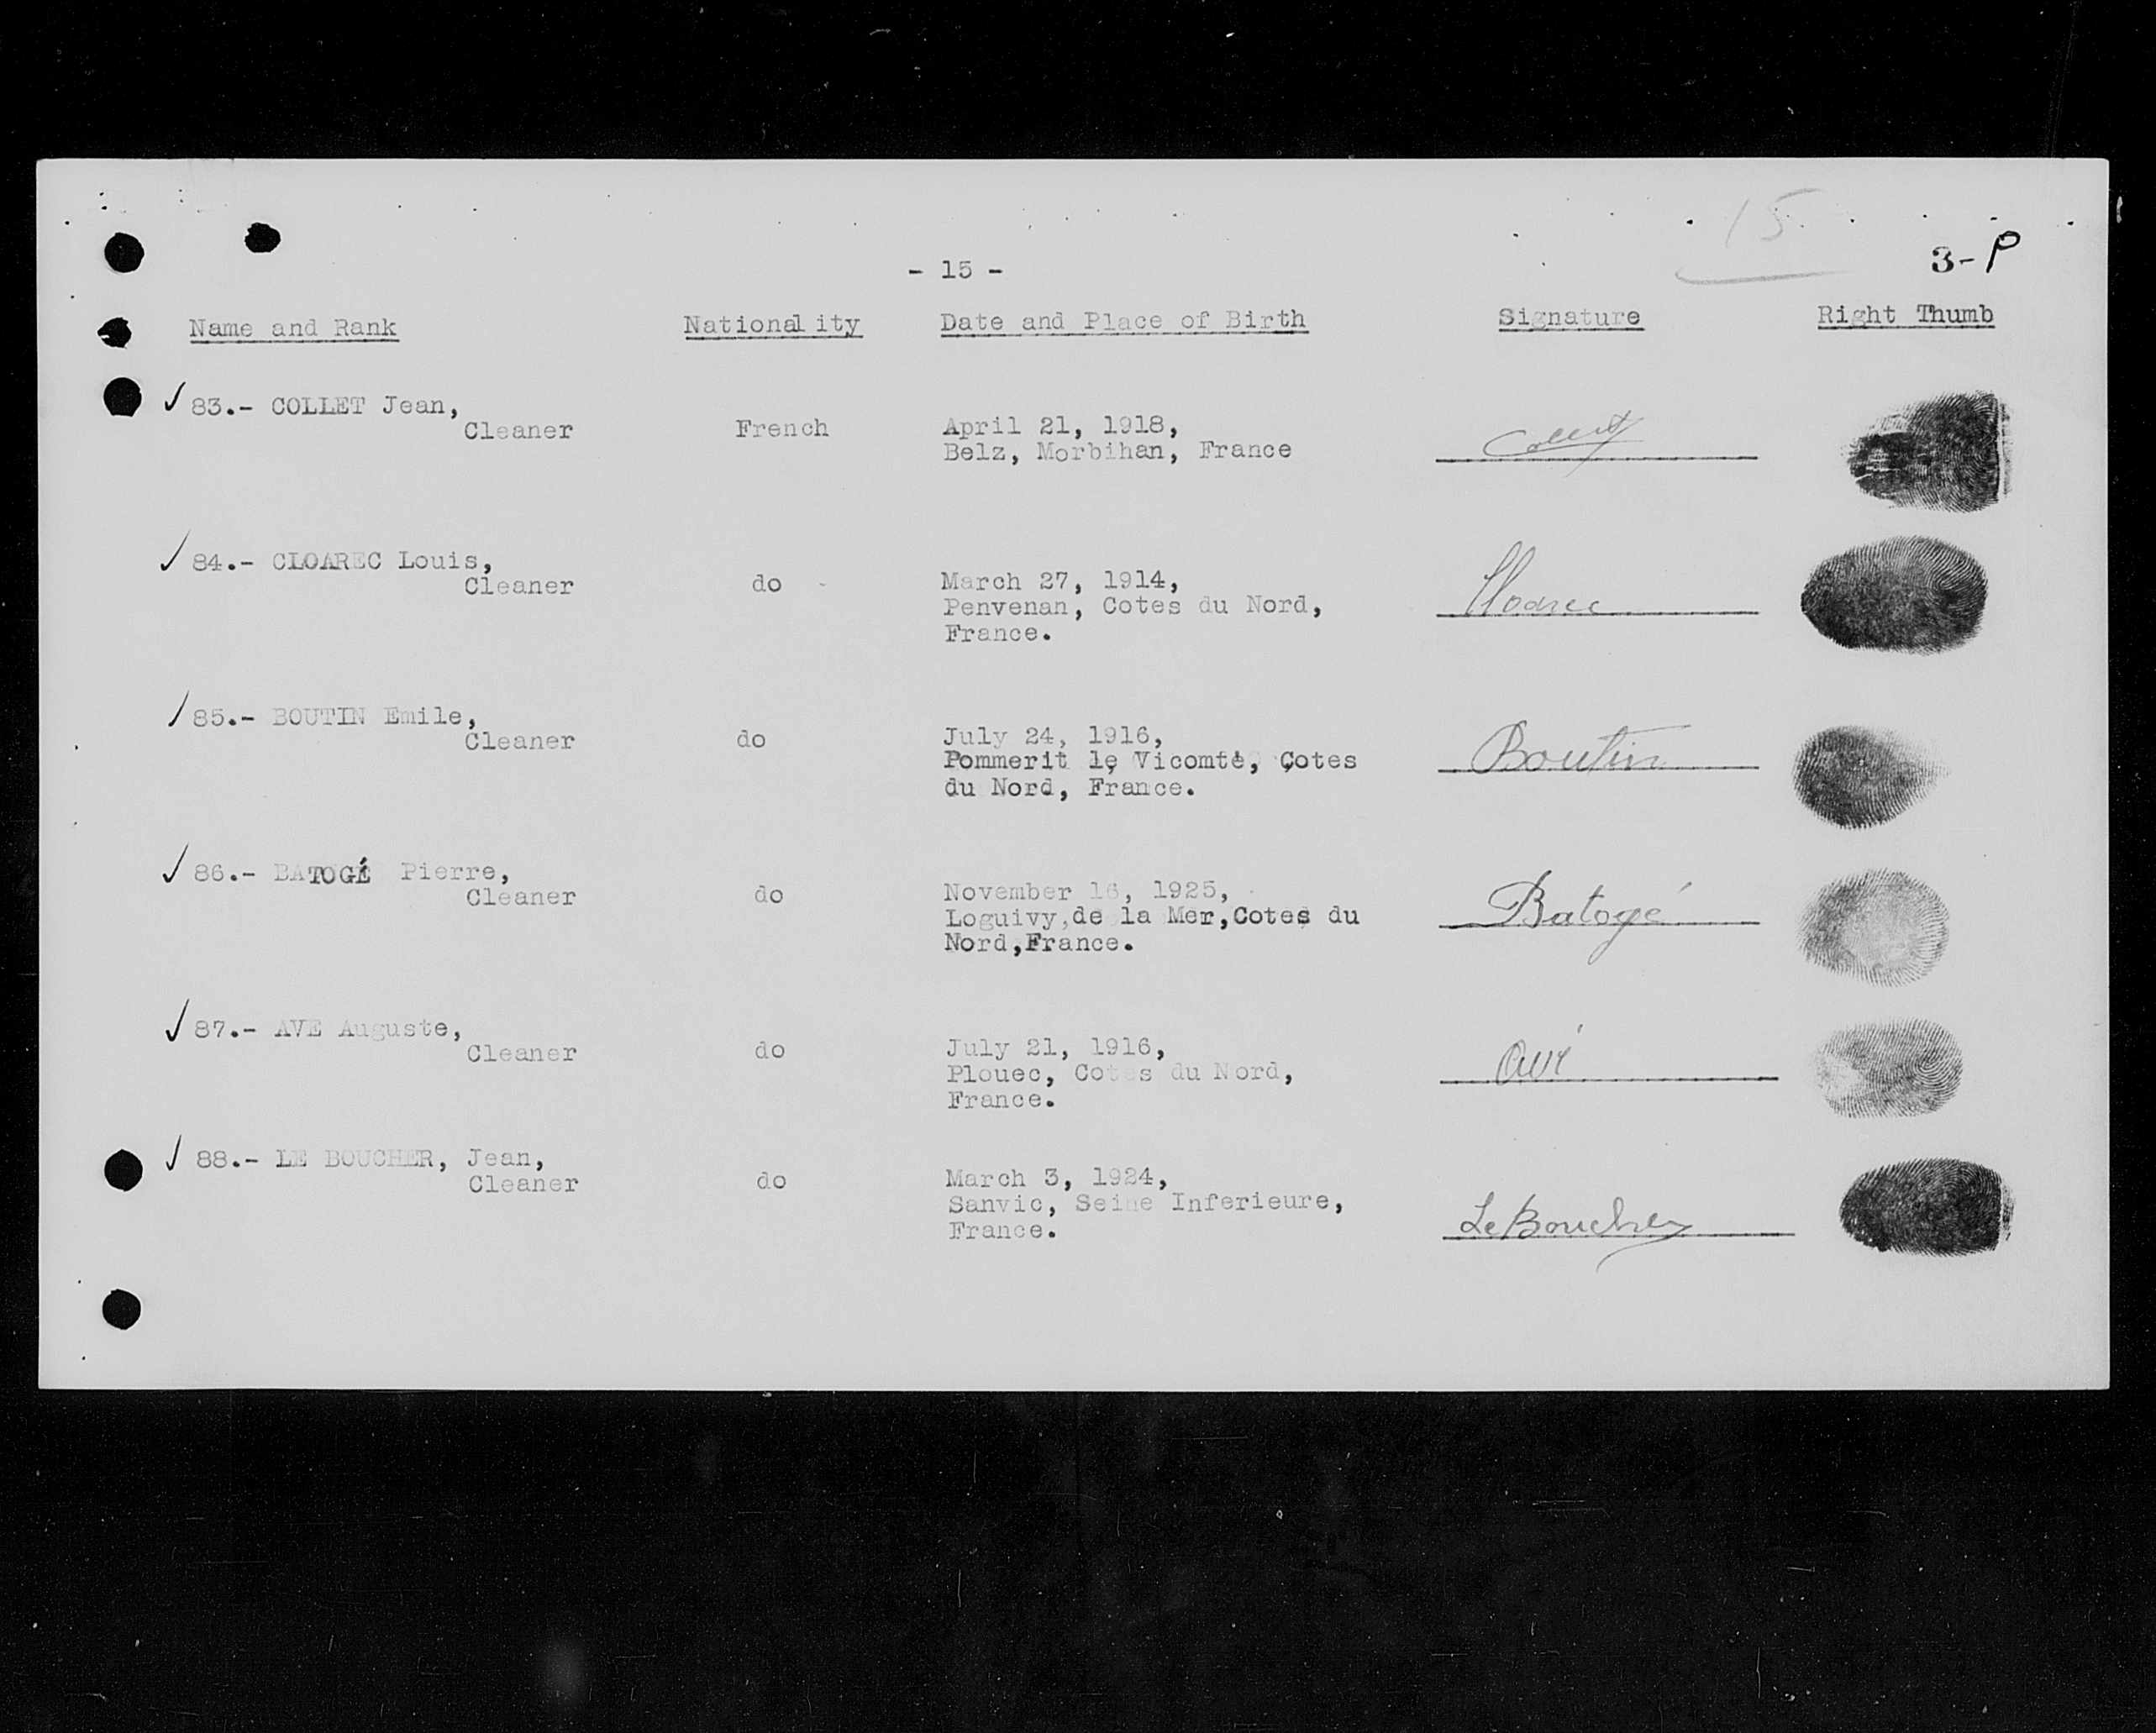 15.
3-P
- 15 -
Name and Rank Nationality Date and Place of Birth Signature Right Thumb
✓ 83.- COLLET Jean,
Cleaner French April 21, 1918,
Belz, Morbihan, France Collet
✓ 84.- CLOAREC Louis,
Cleaner do - March 27, 1914,
Penvenan, Cotes du Nord, Cloarec
France.
/ 85.- BOUTIN Emile,
Cleaner do July 24, 1916,
Pommerit le Vicomte, Cotes Boutin
du Nord, France.
✓ 86.- BATOGÉ Pierre,
Cleaner do November 16, 1925,
Loguivy,de la Mer,Cotes du Batogé
Nord,France.
✓ 87.- AVE Auguste,
Cleaner do July 21, 1916,
Plouec, Cotes du Nord, Avé
France.
✓ 88.- LE BOUCHER, Jean,
Cleaner do March 3, 1924,
Sanvic, Seine Inferieure,
France. Le Boucher